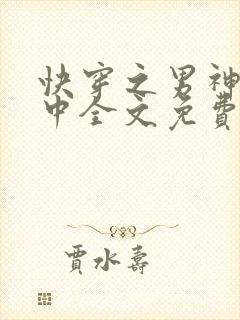 快穿之男神
中全文免費
賈水壽